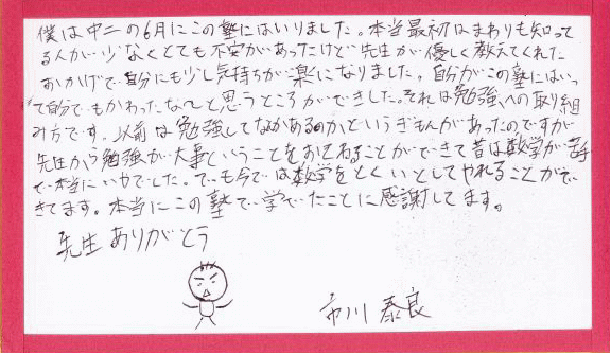 僕は中二の6月にこの塾にはいりました。本当最初はまわりも知って
る人が少なくとても不安があったけど先生が優しく教えてくれた
おかげで自分にも少し気持ちが楽になりました。自分がこの塾にはいっ
て自分でもかわったな〜と思うところができました。それは勉強への取り組
み方です。以前は勉強してなにがあるのかというぎもんがあったのですが
先生から勉強が大事ということをおそわることができて昔は数学が苦手
で本当にいやでした。でも今では数学をとくいとしてやれることがで
きてます。本当にこの塾で学べたことに感謝してます。
先生ありがとう
市川 泰良